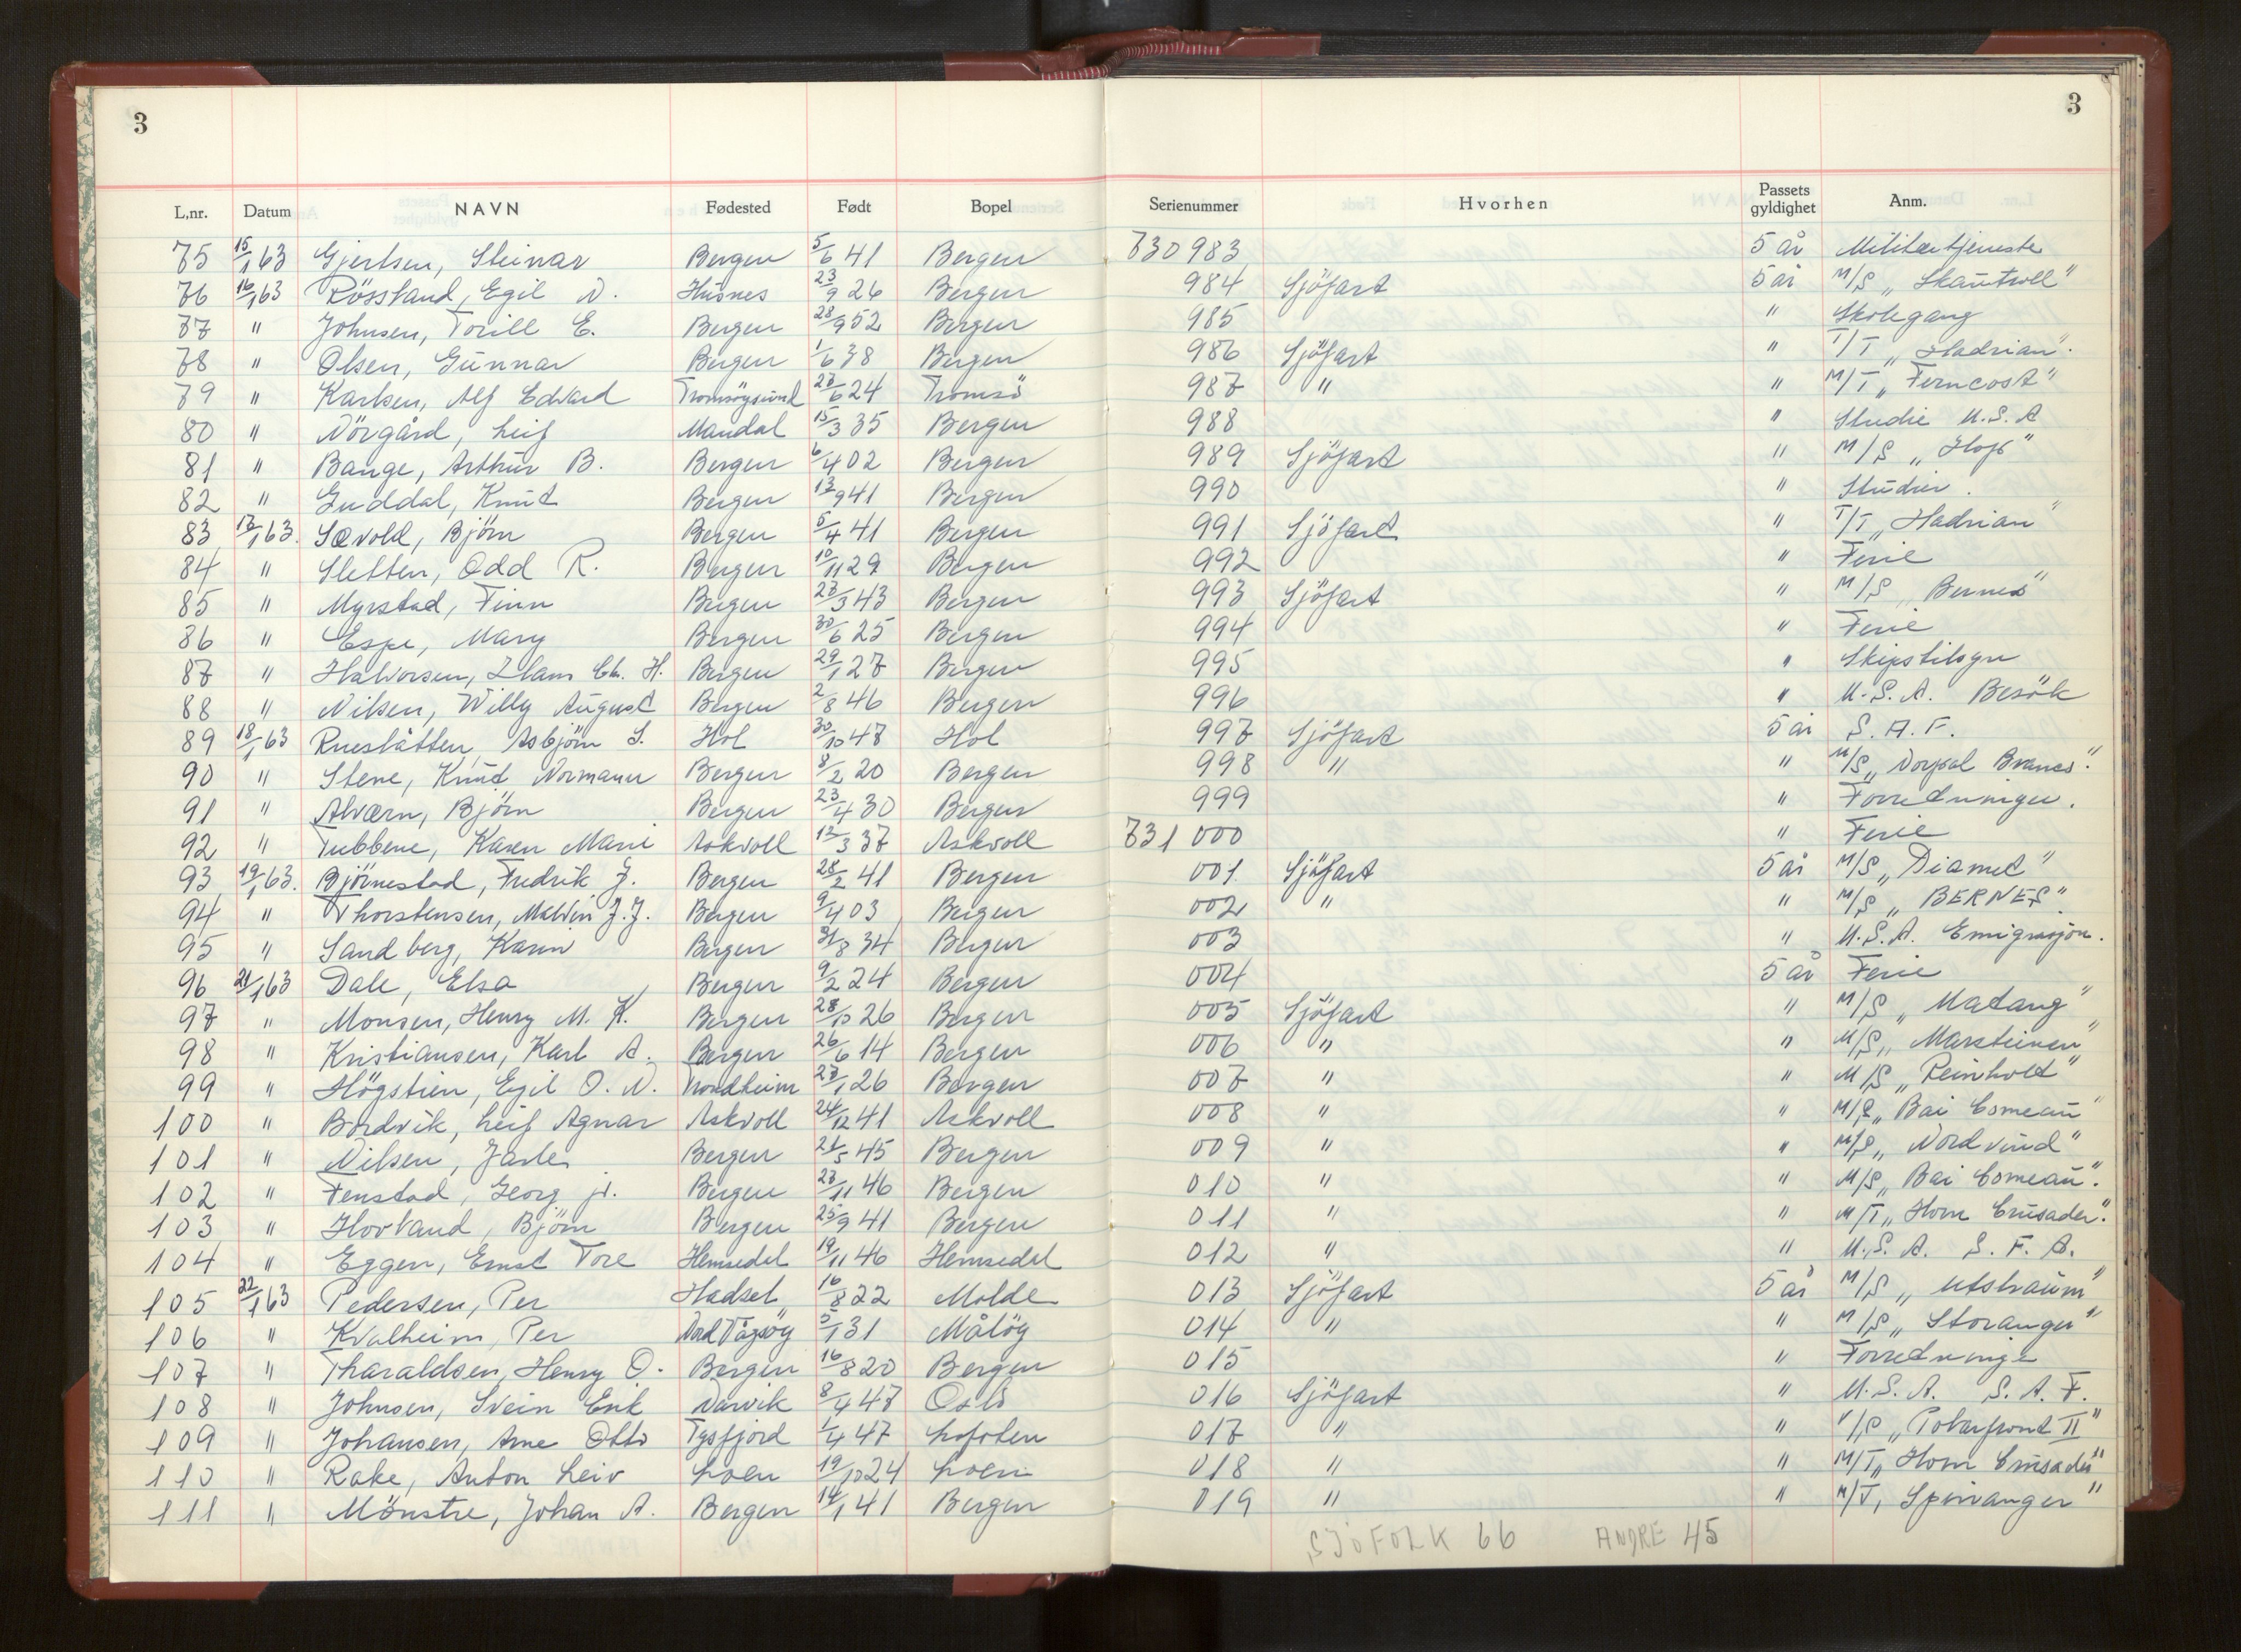 3 3
L.nr. Datum NAVN Fødested Født Bopel Serienummer Hvorhen Passets gyldighet Anm.
75 15/1 63 Gjertsen, Steinar Bergen 5/6 41 Bergen 730983 5 år Militærtjeneste
76 16/1 63 Rössland, Egil N. Husnes 23/9 26 Bergen 984 Sjöfart 5 år M/S „Skautroll"
77 " Johnsen, Torill E. Bergen 28/9 52 Bergen 985 " Skolegang
78 " Olsen, Gunnar Bergen 1/6 38 Bergen 986 Sjöfart " T/T „Hadrian".
79 " Karlsen, Alf Edvard Tromsöysund 27/6 24 Tromsö 987 " " M/T „Ferncost"
80 " Nörgård, Leif Mandal 15/3 35 Bergen 988 " Studie U.S.A
81 " Bange, Arthur B. Bergen 6/4 02 Bergen 989 Sjöfart " M/S „Hop"
82 " Guddal, Knut Bergen 17/9 41 Bergen 990 " Studier.
83 17/1 63. Sævold, Björn Bergen 5/4 41 Bergen 991 Sjöfart " T/T „Hadrian"
84 " Sletten, Odd R. Bergen 10/11 29 Bergen 992 " Ferie
85 " Myrstad, Finn Bergen 27/3 43 Bergen 993 Sjöfart " M/S „Bernes"
86 " Espe, Mary Bergen 30/6 25 Bergen 994 " Ferie
87 " Halvorsen, Hans Chr. H. Bergen 29/1 27 Bergen 995 " Skipstilsyn
88 " Nilsen, Willy August Bergen 2/8 46 Bergen 996 " U.S.A. Besök
89 18/1 63 Rueslåtten, Asbjörn S. Hol 30/10 47 Hol 997 Sjöfart 5 år S.A.F.
90 " Stene, Knut Normann Bergen 8/2 20 Bergen 998 " " M/S „Norsal Branes".
91 " Alværn, Björn Bergen 23/4 30 Bergen 999 " Forretninger.
92 " Tubbene, Karen Marie Askvoll 17/3 37 Askvoll 731000 " Ferie
93 19/1 63. Björnestad, Fredrik J. Bergen 28/2 41 Bergen 001 Sjöfart 5 år M/S „Diamet"
94 " Thorstensen, Malvin J.J. Bergen 9/4 03 Bergen 002 " " M/S „BERNES"
95 " Sandberg, Karin Bergen 31/8 34 Bergen 003 " U.S.A. Emigrasjon.
96 21/1 63 Dale, Elsa Bergen 9/2 24 Bergen 004 5 år Ferie
97 " Monsen, Henry M. K. Bergen 28/10 26 Bergen 005 Sjöfart " M/S „Matang"
98 " Kristiansen, Karl A. Bergen 26/6 14 Bergen 006 " " M/S „Marsteinen"
99 " Högstien, Egil O. N. Nordheim 27/1 26 Bergen 007 " " M/S „Reinholt"
100 " Bordvik, Leif Agnar Askvoll 24/12 41 Askvoll 008 " " M/S „Bai Comeau"
101 " Nilsen, Jarle Bergen 21/5 45 Bergen 009 " " M/S „Nordvind"
102 " Fenstad, Georg jr. Bergen 27/11 46 Bergen 010 " " M/S „Bai Comeau".
103 " Hovland, Björn Bergen 25/9 41 Bergen 011 " " M/T „Horn Crusader".
104 " Eggen, Ernst Tore Hemsedal 19/11 46 Hemsedal 012 " " U.S.A. S.F.A.
105 22/1 63 Pedersen, Per Hadsel 16/8 22 Molde 013 Sjöfart 5 år M/S „Utstraum"
106 " Kvalheim, Per Nord Vågsöy 5/1 31 Målöy 014 " " M/S „Storanger"
107 " Tharaldsen, Henry O. Bergen 16/8 20 Bergen 015 " Forretninger
108 " Johnsen, Svein Erik Narvik 8/4 47 Oslo 016 Sjöfart " U.S.A. S.A.F.
109 " Johansen, Arne Otto Tysfjord 1/4 47 Lofoten 017 " " V/S „Polarfront II"
110 " Rake, Anton Leiv Loen 19/10 24 Loen 018 " " M/T „Horn Crusader"
111 " Mönstre, Johan A. Bergen 14/1 41 Bergen 019 " " M/T, Spinanger"
SJÖFOLK 66 ANDRE 45